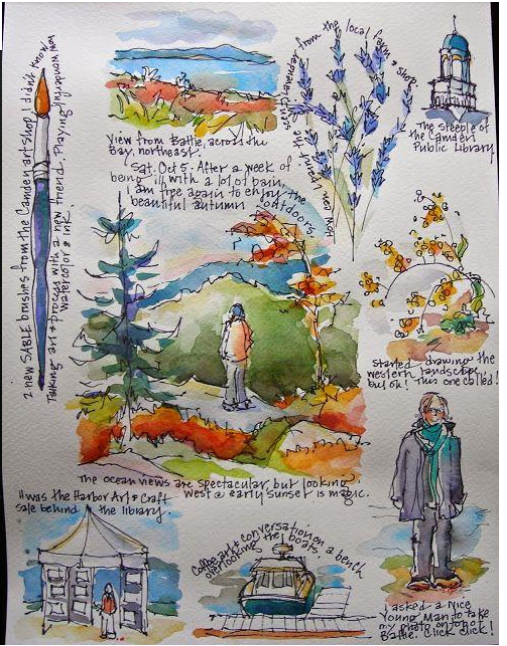 2 new SABLE brushes from the Camden art shop, I didn't know
how wonderful!
Talking art & process with a new friend. Playing
watercolor & ink.
View from Battie, across the
Bay, northeast.
Sat. Oct 5. After a week of
being ill with a lot of pain
I am free again to enjoy the
beautiful autumn outdoors.
How sweet the
lavender
from the local farm & shop.
The steeple of
the Camden
Public Library
Started drawing the
western landscape
but oh! This one called!
The ocean views are spectacular, but looking
west @ early sunset is magic.
was the Harbor Art & Craft
Sale behind the library.
Coffee, art & conversation on a bench
overlooking the boats.
I asked a Nice
Young Man to take
my photo on top of
Battie. Click click!